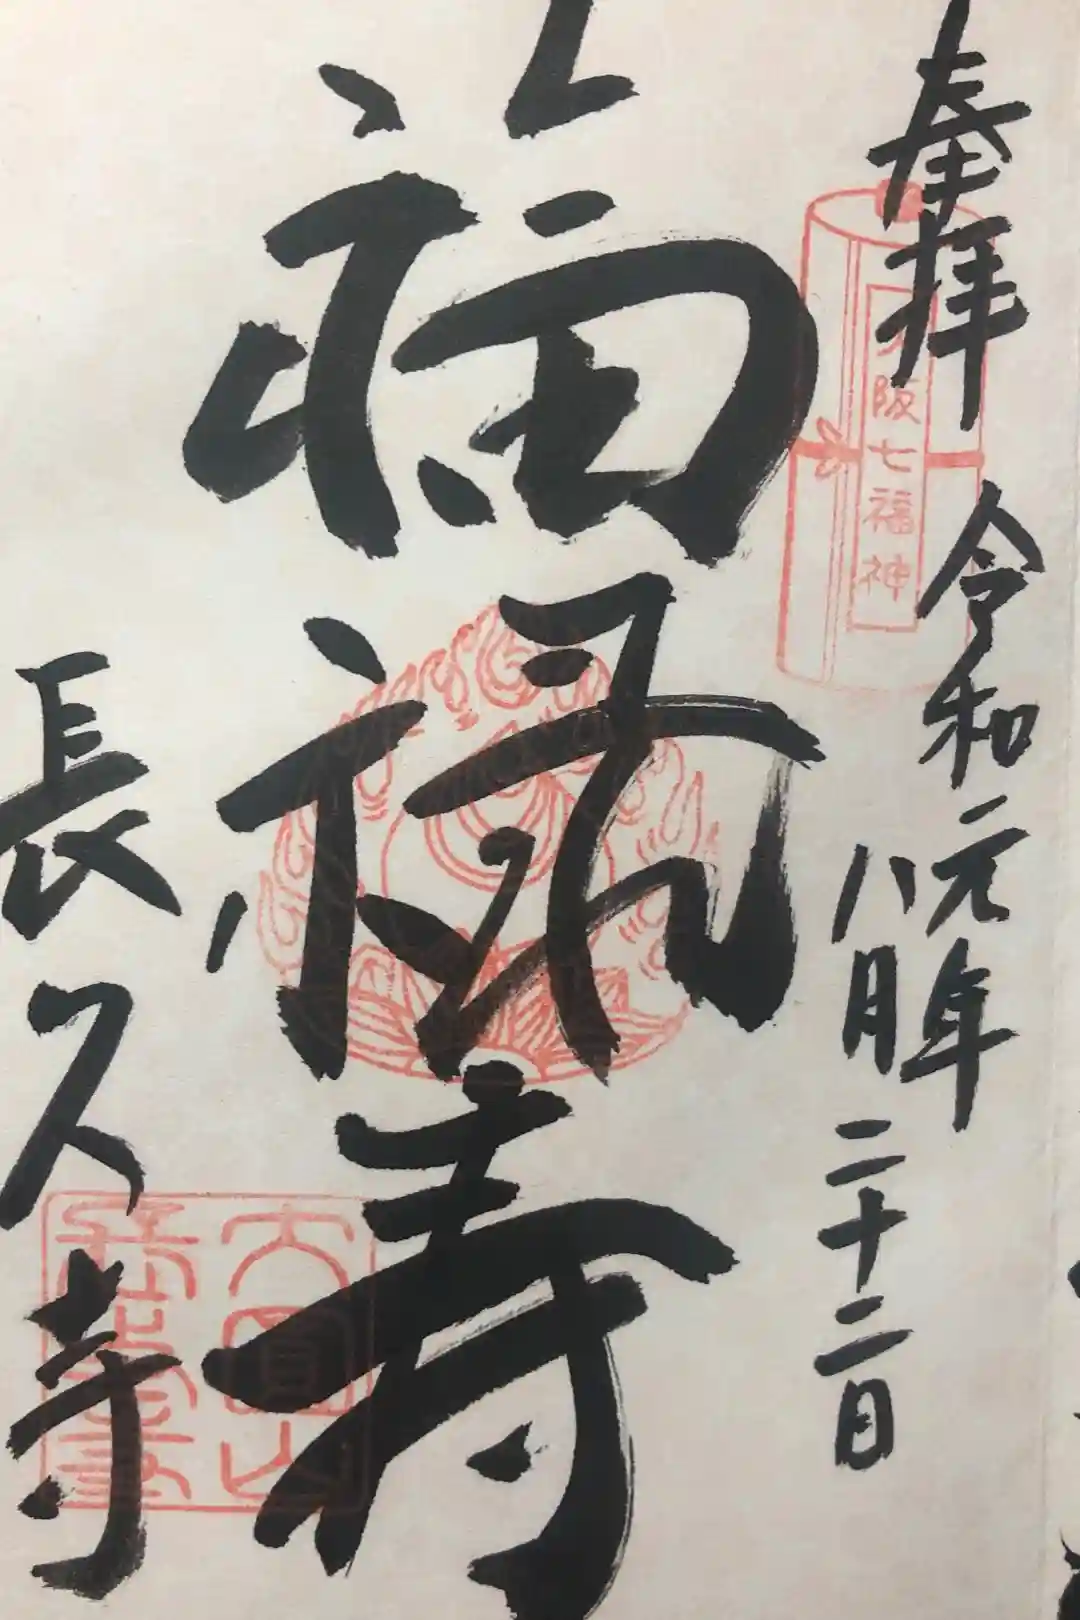 奉拝
阪七福神
令和元年
八月二十二日
福禄寿
長久寺
大圓山